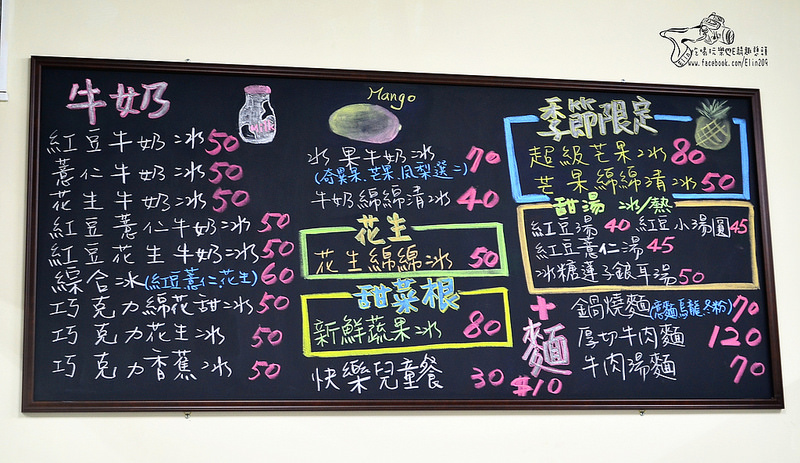 牛奶
milk
紅豆牛奶冰 50
薏仁牛奶冰 50
花生牛奶冰 50
紅豆薏仁牛奶冰 50
紅豆花生牛奶冰 50
綜合冰(紅豆薏仁花生) 60
巧克力綿花甜冰 50
巧克力花生冰 50
巧克力香蕉冰 50
Mango
水果牛奶冰 70
(奇異果.芒果.鳳梨選二)
牛奶綿綿清冰 40
花生
花生綿綿冰 50
甜菜根
新鮮蔬果冰 80
快樂兒童餐 30
季節限定
超級芒果冰 80
芒果綿綿清冰 50
甜湯 冰/熱
紅豆湯 40 紅豆小湯圓 45
紅豆薏仁湯 45
冰糖蓮子銀耳湯 50
+麵 $10
鍋燒麵(意麵.烏龍.冬粉) 70
厚切牛肉麵 120
牛肉湯麵 70
www.facebook.com/Elin209